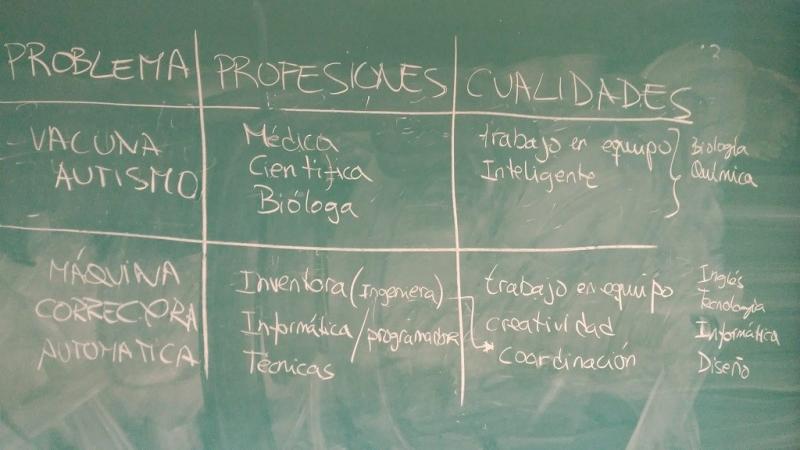 PROBLEMA PROFESIONES CUALIDADES
VACUNA
AUTISMO
Médica
Científica
Bióloga
trabajo en equipo
Inteligente
Biología
Química
MÁQUINA
CORRECTORA
AUTOMATICA
Inventora (Ingeniera)
Informática/programadora
Técnicas
trabajo en equipo
creatividad
coordinación
Inglés
Tecnología
Informática
Diseño